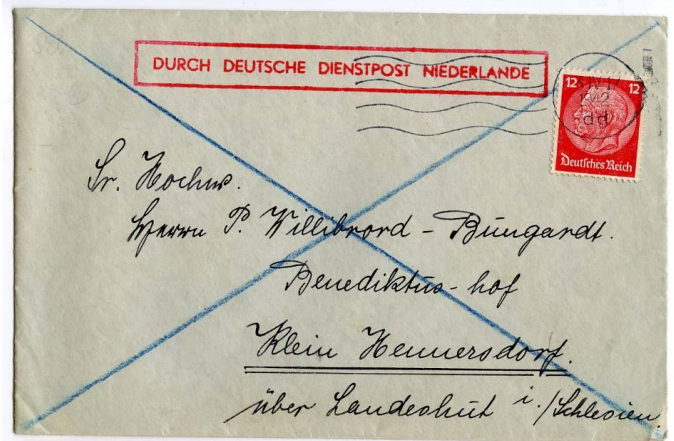 DURCH DEUTSCHE DIENSTPOST NIEDERLANDE
12 12
Deutsches Reich
Sr. Hochw.
Herrn P. Willibrord - Bungardt.
Benediktus-hof
Klein Hennersdorf.
über Landeshut i./Schlesien.